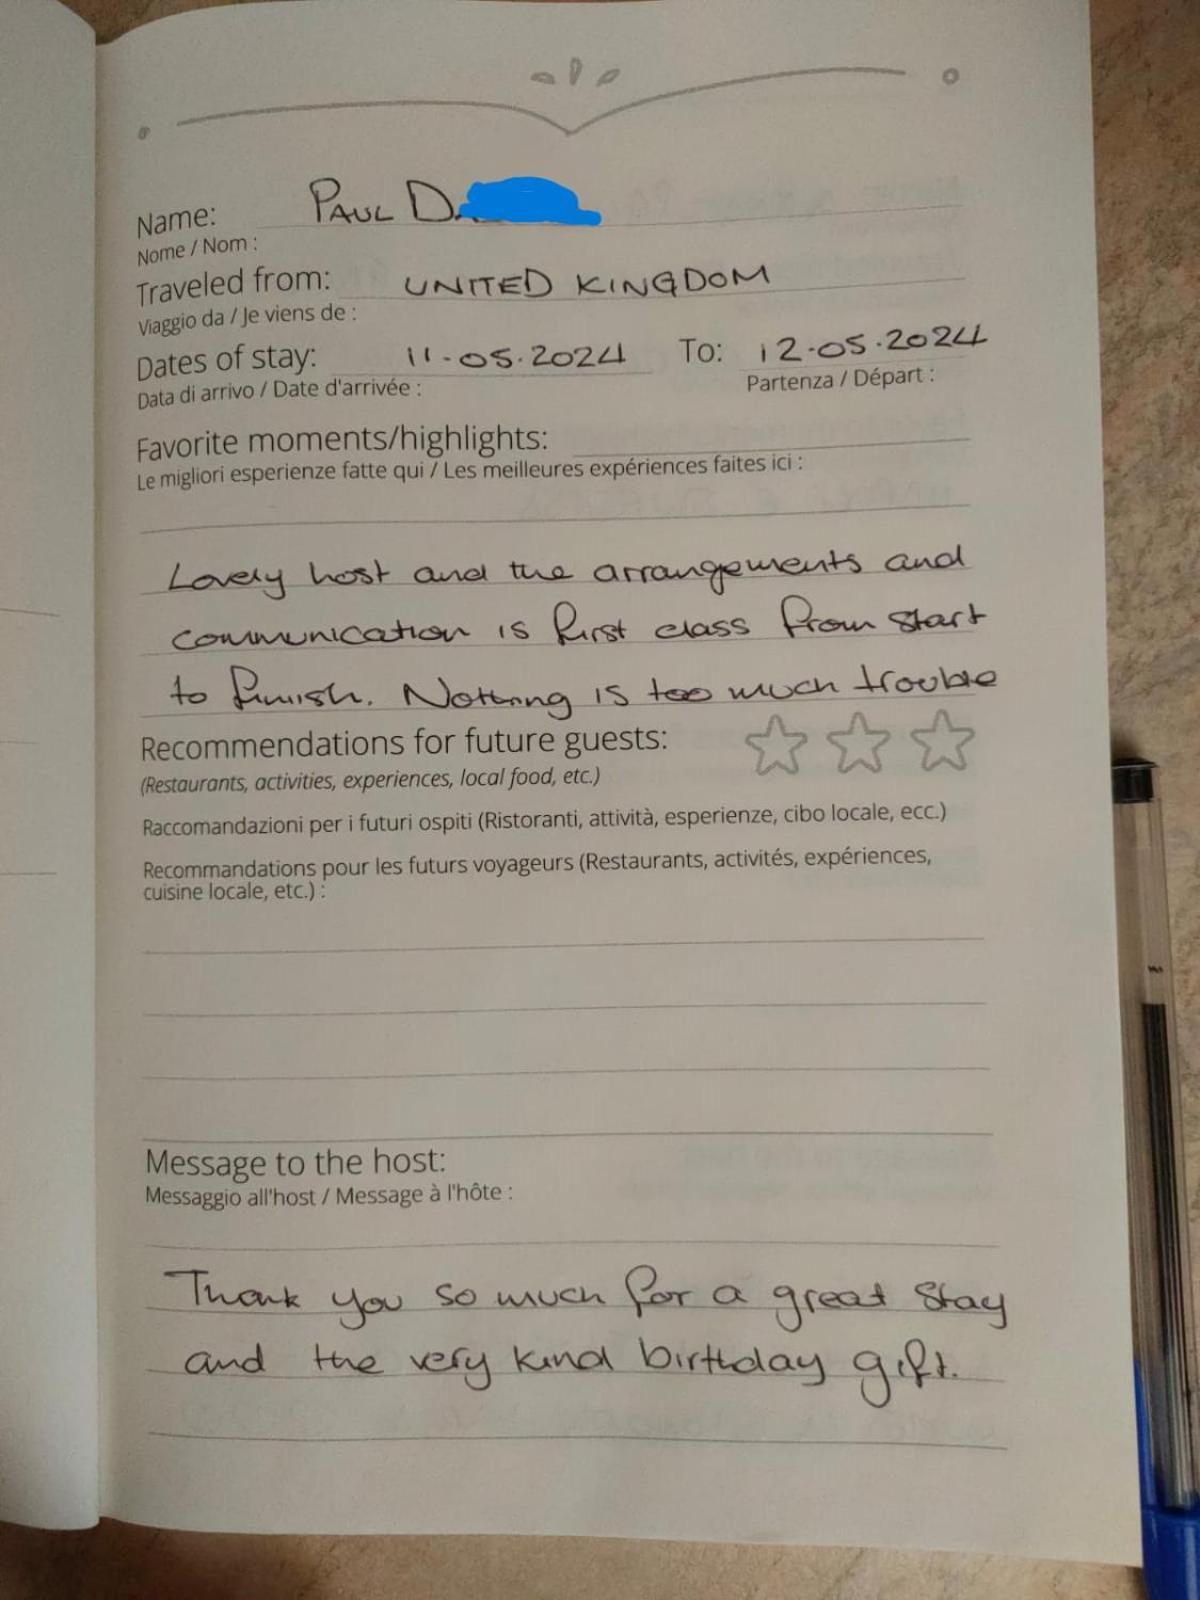 Name: PAUL D
Nome / Nom :
Traveled from: UNITED KINGDOM
Viaggio da / Je viens de :
Dates of stay: 11.05.2024 To: 12.05.2024
Data di arrivo / Date d'arrivée : Partenza / Départ :
Favorite moments/highlights:
Le migliori esperienze fatte qui / Les meilleures expériences faites ici :
Lovely host and the arrangements and
communication is first class from start
to finish. Nothing is too much trouble
Recommendations for future guests:
(Restaurants, activities, experiences, local food, etc.)
Raccomandazioni per i futuri ospiti (Ristoranti, attività, esperienze, cibo locale, ecc.)
Recommandations pour les futurs voyageurs (Restaurants, activités, expériences,
cuisine locale, etc.) :
Message to the host:
Messaggio all'host / Message à l'hôte :
Thank you so much for a great stay
and the very kind birthday gift.